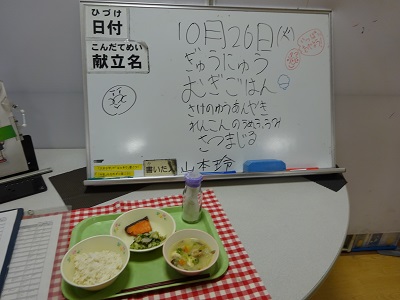 ひづけ
日付
こんだてめい
献立名
10月26日(火)
ぎゅうにゅう
むぎごはん
さけのゆうあんやき
れんこんの
さつまじる
書いた人
山本玲